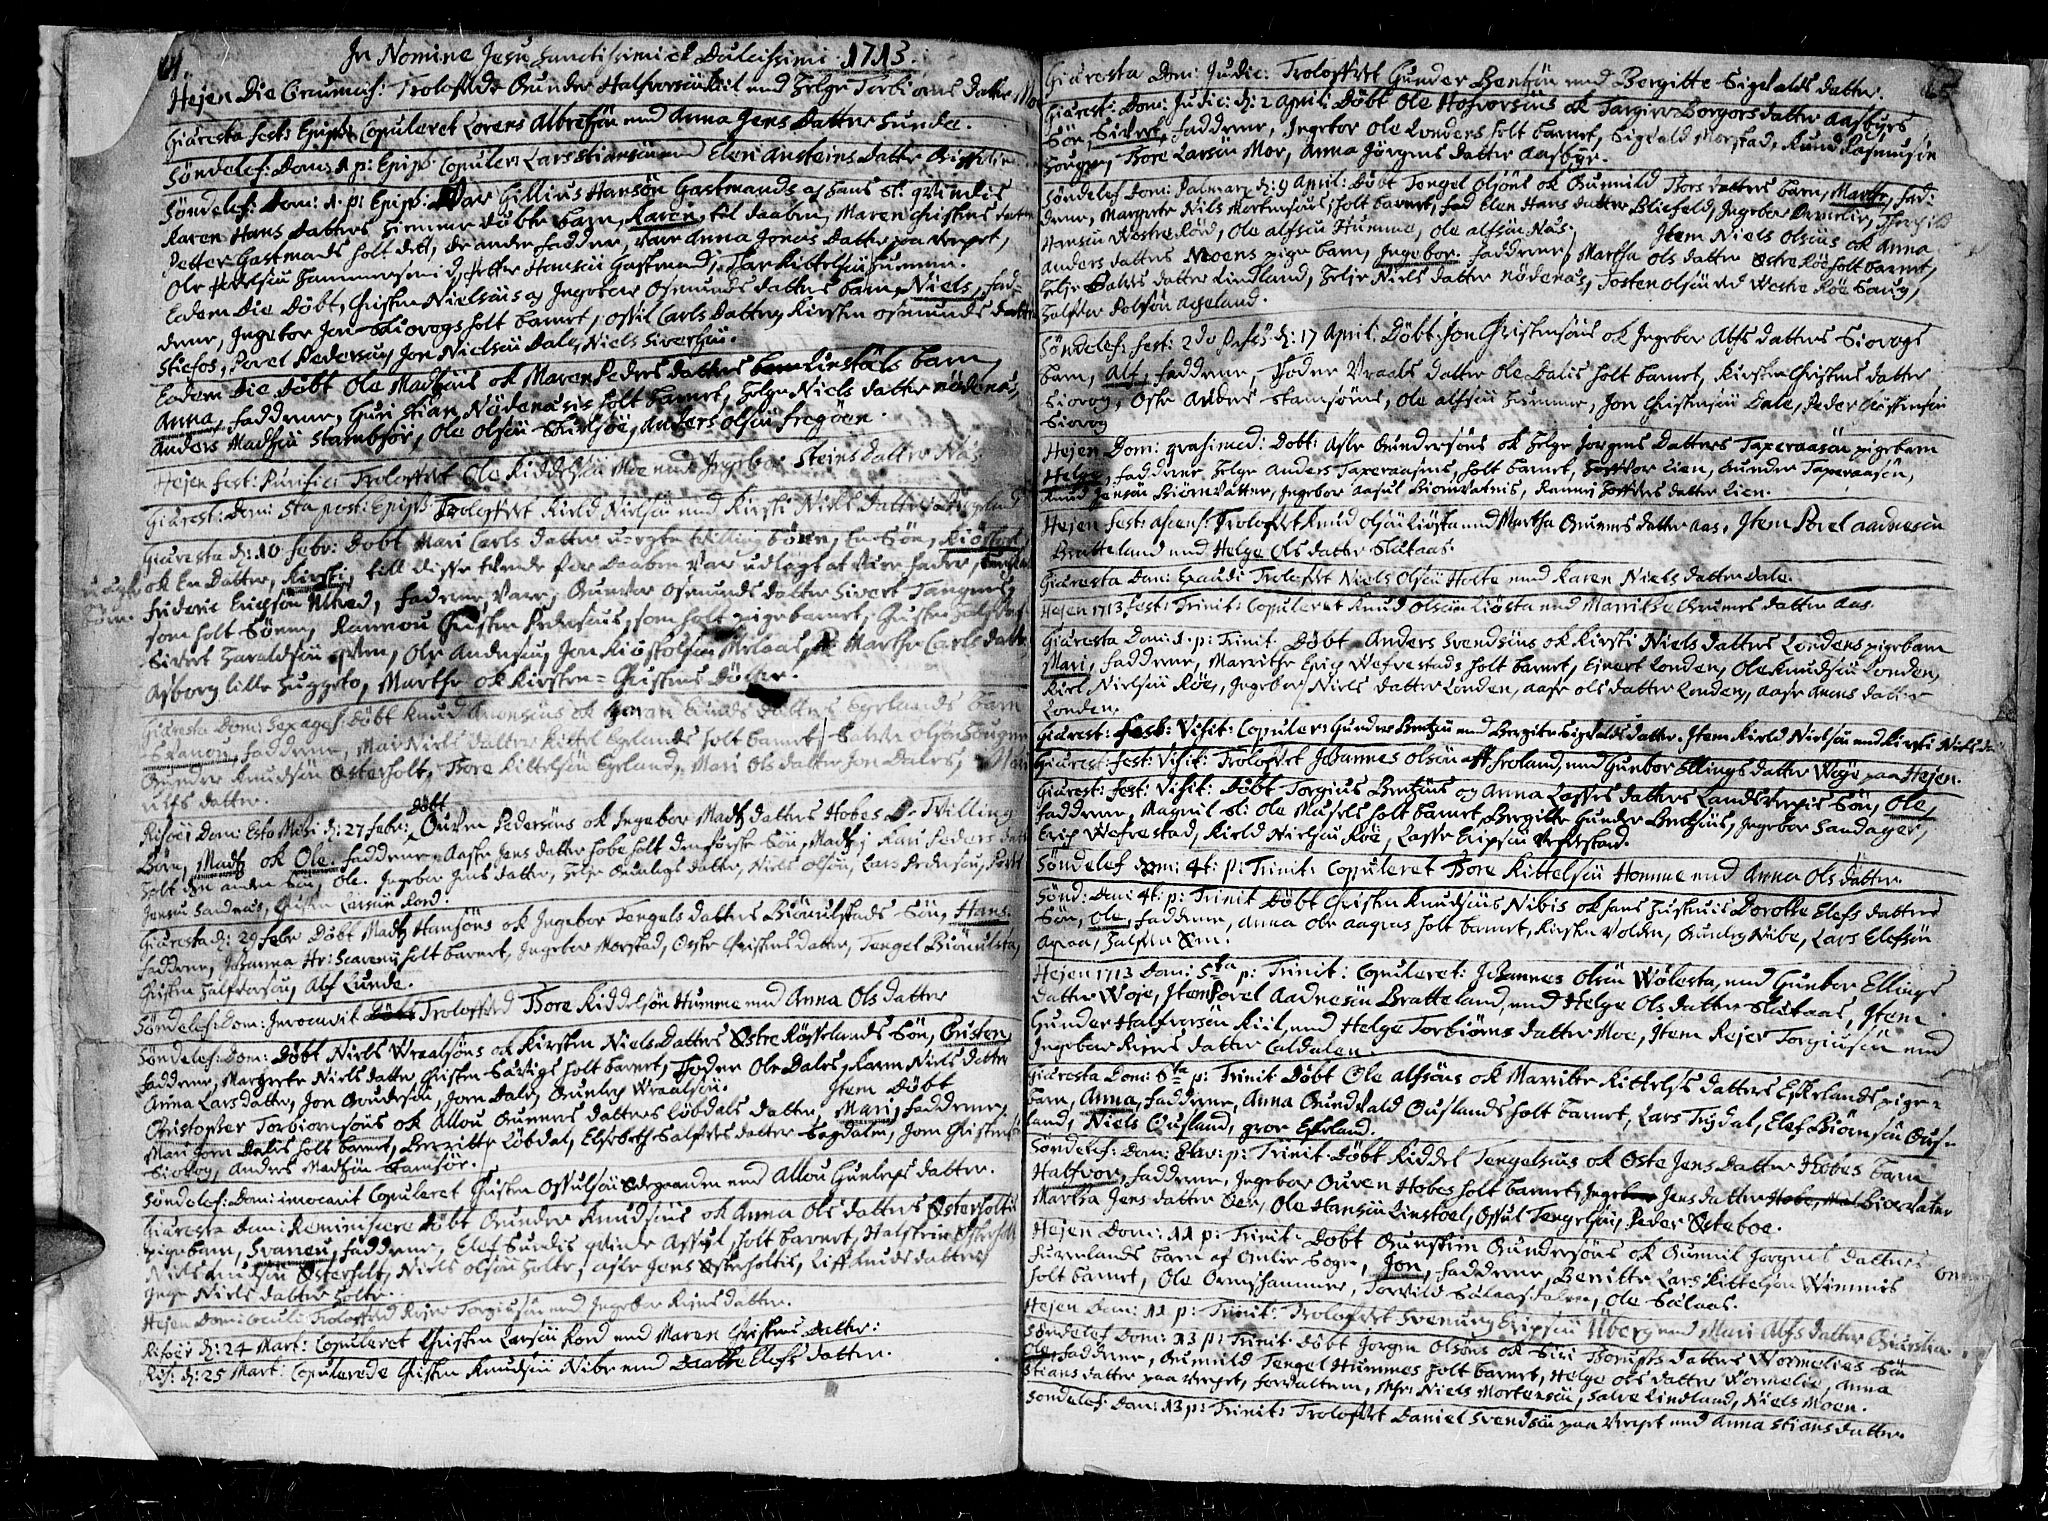 61.
In Nomine Jesu Sanctissimi et Dulcissimi 1713.
Hejen Die Circumcis: Trolofvede Gunder Halfvorsøn Kiil med Helge Torbiørns datter Moe
Giæresta Fest: Epiph: Copuleret Lorens Albretsøn med Anna Jens Datter Sunde.
Søndelef: Dom: 1 p: Epiph: Copuler: Lars Stiansøn med Eleri Ansteins datter
Søndelef: Dom: 1. p: Epiph: Var Gillius Hansøn Gastmands og hans Sl: qvindis
Karen Hans datters hiemmedøbte barn, Karen, til daaben, Maren Christens datter
Petter Gastmands holt det, de andre faddere, vare Anna Jonas Datter paa Verpet,
Ole Pedersøn Hammersmid, Petter Hansøn Gastmand, Thor Kittelsøn Humme.
Eodem Die Døbt, Christen Nielsøns og Ingebor Osmunds datters barn, Niels, fad-
derne, Ingebor Jon Siovogs holt barnet, Ossil Carls Datter, Kirsten Osmunds datter
Stiefos, Povel Pedersøn, Jon Nielsøn Dale, Niels Siversøn.
Eodem Die Døbt Ole Madsøns ok Maren Peders datters Linstøls barn,
Anna, Fadderne, Guri Stian Nødenæsis holt barnet, Helge Niels datter Nødenæs,
Anders Madsøn Stambsøe, Ole Olsøn Skielsøe, Anders Olsøn Fregøen.
Hejen Fest: Purific: Trolofvet Ole Kiddelsøn Moe med Ingebor Steins Datter Næs
Giærest: Dom: 5ta post: Epiph: Trolofvet Kield Nielsøn med Kirsti Niels Datter
Giæresta d: 10 Febr: Døbt Mari Carls datters u-ægte tvilling børn, En Søn, Kiøstol,
ok En Datter, Kirsti, till disse tvende for Daaben var udlagt at være fader,
Frideric Erichsøn Alfved, fadderne, vare, Gunvor Osmunds datter Sivert Tangens,
som holt Sønen, Rannou Christen Pedersøns, som holt pigebarnet, Christen
Sivert Haraldsøn Qven, Ole Andersøn, Jon Kiøstolsøn Melaas, Marthe Carls datter
Asborg lille Huggeto, Marthe ok Kirsten Christens Døbler.
Giæresta Dom: Sexages: døbt Knud Amonsøns ok Goran Gunds datters Egelands barn
Svanou, fadderne, Mari Niels datter Kittel Egelands holt barnet, Salve Olsøn Sougene
Gunder Knudsøn Østerholt, Tore Kittelsøn Egeland, Mari Ols datter Jon Dales, Mari
Alfs datter.
Risøer Dom: Esto Mihi d: 27 Febr: døbt Ouven Pedersøns ok Ingebor Madz datters Hobes 2 Tvilling
Børn, Madtz ok Ole. fadderne, Aase Jens datter Hobe holt den første Søn, Madz, Kari Peders datter
holt den anden Søn, Ole. Ingebor Jens datter, Helge Gunlegs datter, Niels Olsøn, Lars Pedersøn, Povel
Jensøn Sandnæs, Christen Larsøn Rord.
Giæresta d: 29 Febr Døbt Madz Hansøns ok Ingebor Tengels datters Biørnilstads Søn, Hans.
Fadderne, Johanna Hr: Scavenii holt barnet, Ingebor Morstad, Osse Christens datter, Tengel Biørnilsta,
Christen Halfvorsøn, Alf Lunde.
Søndelef: Dom: Invocavit Trolofvede Tore Kiddelsøn Humme med Anna Ols datter
Søndelef: Dom: Døbt Niels Wraalsøns ok Kirsten Niels Datters Østre Røyselands Søn, Christen,
fadderne, Margrete Niels datter Christen Savigs holt barnet, Thoder Ole Dales, Karen Niels datter
Anna Lars datter, Jon Gudersøn, Jorn Dale, Gunleg Wraalsøn. Item Døbt
Christopher Torbiornsøns ok Allou Gunners datters Løbdals datter, Mari, fadderne,
Mari Jorn Dales holt barnet, Bergitte Løbdal, Elisabeth Halfvers datter Sogdalen, Jorn Christensøn
Siovog, Anders Madsøn Stamsøe.
Søndelef: Dom: invocavit Copuleret Christen Ossulsøn Ødegaarden med Allou Gunlefs datter.
Giæresta Dom: Reminiscere Døbt Gunder Knudsøns ok Anna Ols datters Østerholtis
pigebarn, Svaneu, Fadderne, Elef Sundis qvinde Assil, holt barnet, Halfstein Østerholt
Niels Knudsøn Østerholt, Niels Olsøn Holte, Asse Jens Østerholtis, Lif Knuds datter
Inge Niels datter Holte.
Hejen Dom: Oculi Trolofved Rejer Torgiusøn med Ingebor Rejers datter.
Risøer d: 24 Mart: Copuleret Christen Larsøn Rord med Maren Christens Datter:
Ris: d: 25 Mart: Copulerede Christen Knudsøn Nibe med Doothe Elefs datter.
Giæresta Dom: Judic: Trolofvet Gunder Bentsøn med Bergitte Sigvalds datter.
Giærest: Dom: Judic: d: 2 April: Døbt Ole Hofvorsøns ok Targier Borgors datter Aasbyes
Søn, Sivert, Fadderne, Ingebor Ole Londens holt barnet, Sigvald Morstad, Knud Rasmusøn
Songe, Tore Larsøn Mor, Anna Jørgens datter Aasbye.
Søndelef Dom: Palmar: d: 9 April: Døbt Tengel Olsøns ok Gunnild Tors datters barn, Marthe, Fad:
derne, Margrete Niels Mortensøns holt barnet, Elen Hans datter Bliefeld, Ingebor Ormelie, Thorkild
Hansøn Westre Rord, Ole Alfsøn Humme, Ole Alfsøn Næs. Item Niels Olsøns ok Anna
Anders datters Moens pige barn, Ingebor. Fadderne, Martha Ols datter Østre Røe holt barnet,
Helje datter Lindland, Helje Niels datter Nødenæs, Tosten Olsøn ved Westre Røe Saug,
Halfvor Polsøn Ageland.
Søndelef: Fest: 2do Pasc: d: 17 April: Døbt Jon Christensøns ok Ingebor Alfs datters Siovogs
barn, Alf, fadderne, Thoder Wraals datter Ole Dalis holt barnet, Kirsten Christens datter
Siovog, Osse Anders Stamsøens, Ole Alfsøn Hummer, Jon Christensøn Dale, Peder Christensøn
Siovog
Hejen Dom: Qvasimod: Døbt: Asle Gundersøns ok Helge Jorgens Datters Taxeraasøn pigebarn
Helge, Fadderne, Helge Anders Taxeraasens, holt barnet, Halfvor Lien, Gunder Taxeraasen,
Knud Jensøn Biornvatten, Ingebor Aasul Biornvatnis, Ranni Halfvors datter Lien.
Hejen Fest: Ascens: Trolofvet Knud Olsøn Liøsta med Martha Gunners datter Aas, Item Povel Aadnesøn
Bratteland med Helge Ols datter Slætaas.
Giæresta Dom: Exaudi Trolofvet Niels Olsøn Holte med Karen Niels datter Dale.
Hejen 1713 Fest: Trinit: Copuleret Knud Olsøn Liøsta med Marrithe Gunners datter Aas.
Giæresta Dom: 1. p: Trinit. Døbt Anders Svendsøns ok Kirsti Niels datters Londens pigebarn
Mari, Fadderne, Marrithe Erich Wefrestads holt barnet, Eivert Londen, Ole Knudsøn Londen,
Kiel Nielsøn Røe, Ingebor Niels datter Londen, Aase Ols datter Londen, Aase Amns datter
Londen.
Giærest: Fest: Visit: Copuler: Gunder Bentsøn med Bergite Sigvalds datter. Item Kield Nielsøn med Kirsti Niels dat:
Giærest: Fest: Visit: Trolofvet Johannes Olsøn aff Froland, med Gunbor Ellings datter Woje paa Hejen.
Giærest: Fest: Visit: Døbt Torgius Bentsøns og Anna Lasses datters Landsverpis Søn, Ole,
Fadderne, Magnil Sl: Ole Musels holt barnet, Bergitte Gunder Bentsøns, Ingebor Sandager,
Erich Wefrestad, Kield Nielsøn Røe, Lasse Eripsøn Wefrestad.
Søndelef Dom: 4t: p: Trinit: Copuleret Tore Kittelsøn Homme med Anna Ols datter.
Sønd: Dom: 4t: p: Trinit Døbt Christen Knudsøns Nibis ok hans Hustruis Dorothe Elefs datters
Søn, Ole, Fadderne, Anna Ole Aagnes holt barnet, Kirsten Volden, Gunleg Nibe, Lars Elefsøn
Apaa, Halfven Øen.
Hejen 1713 Dom: 5ta p: Trinit: Copuleret: Johannes Olsøn Wolesta, med Gunbor Ellings
datter Woje, Item Povel Aadnesøn Bratteland, med Helge Ols datter Slætaas, Item
Gunder Halfvorsøn Kiil, med Helge Torbiørns datter Moe, Item Rejer Torgiusøn med
Ingebor Rejers datter Caldalen
Giæresta Dom: 6ta p: Trinit Døbt Ole Alfsøns ok Marrithe Kittels datters Eskelands pige=
barn, Anna, Fadderne, Anna Gundvald Ouslands holt barnet, Lars Tvedal, Elef Biørnsøn Ous-
land, Niels Ousland, Groe Eskeland.
Søndelef: Dom: p: Trinit Døbt Kiddel Tengelsøns ok Oste Jens Datter Hobes barn
Halfvor, Fadderne, Ingebor Ouven Hobes holt barnet, Ingebor Jens datter Biorvaten
Martha Jens datter Øen, Ole Hansøn Linstøel, Ossul Tengelsøn, Peder Østeboe.
Hejen Dom: 11 p: Trinit: Døbt Gunstein Gundersøns ok Gunnil Jorgens datters
Hurrelands barn af Omlie Sogn, Jon, Fadderne, Benitte Lars Kittelsøn Wimmis
holt barnet, Ole Ormshammer, Torvild Sælaasdalen, Ole Sælaas.
Hejen Dom: 11 p: Trinit: Trolofvet Svenung Eripsøn Uberg med Mari Alfs datter Giæresta
Søndelef Dom: 13 p: Trinit. Døbt Jorgen Olsøns ok Siri Torufs datters Wormelies Søn
Ole, Fadderne, Gunnild Tengel Hummes holt barnet, Helge Ols datter Wormelie, Anna
Stians datter paa Verpet, Forvalteren, Mhr: Niels Mortensøn, Salve Lindland, Niels Moen.
Søndelef: Dom: 13 p: Trinit: Trolofvet Daniel Svendsøn paa Verpet med Anna Stians datter.